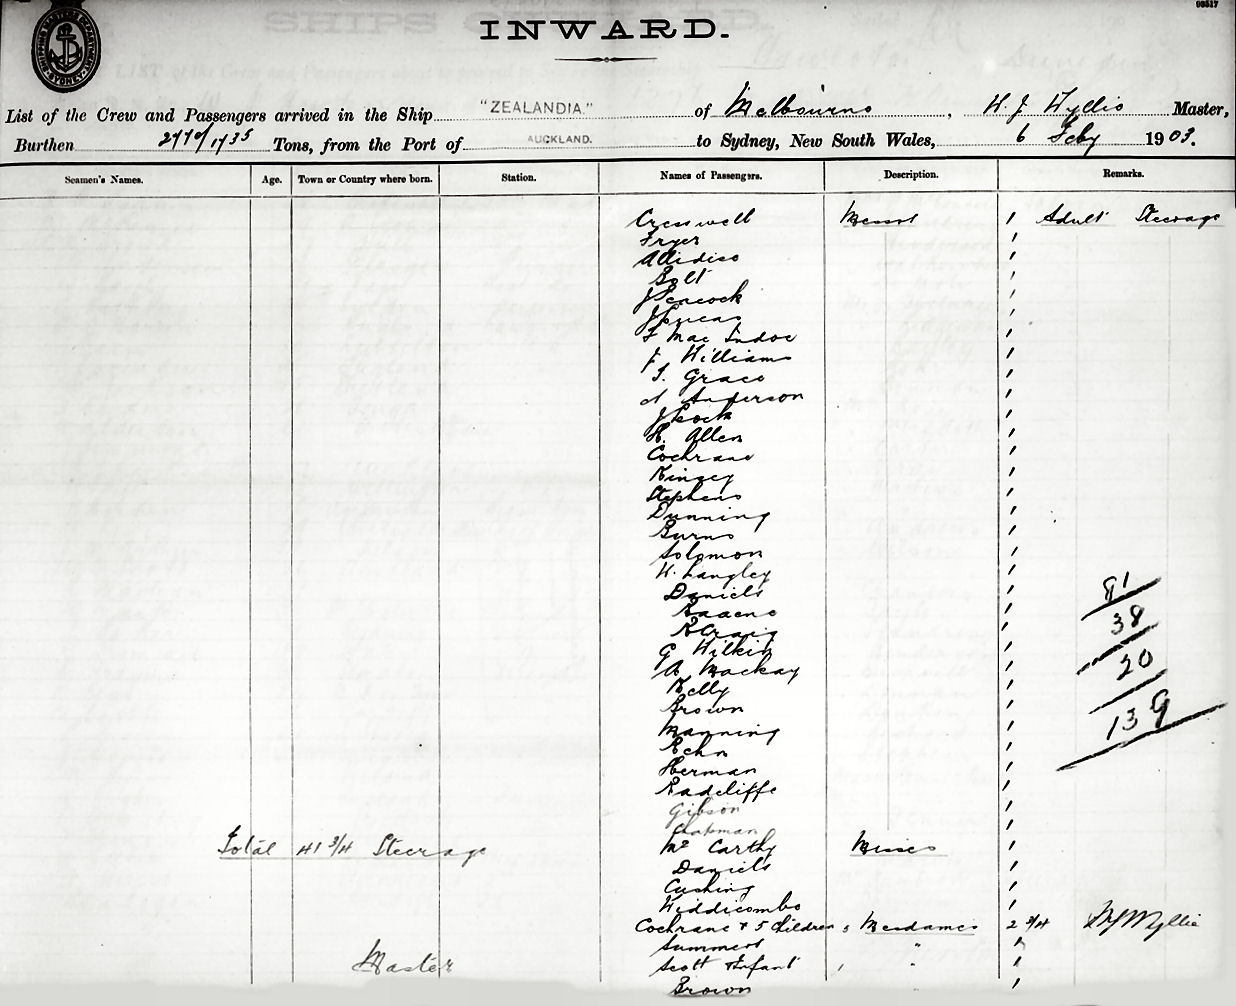 93517
INWARD.
SHIPPING MASTER'S DEPARTMENT SYDNEY
List of the Crew and Passengers arrived in the Ship "ZEALANDIA." of Melbourne, H. J. Wyllie Master,
Burthen 2770/1735 Tons, from the Port of AUCKLAND. to Sydney, New South Wales, 6 Feby 1903.
Seamen's Names. Age. Town or Country where born. Station. Names of Passengers. Description. Remarks.
Cresswell Messrs 1 Adult Steerage
Fryer
Allidice
Bolt
J Peacock
J Lucas
F Mac Indoe
J. Williams
T. Grace
A Anderson
J Cock
H. Allen
Cochrane
Kinsey
Stephens
Dunning
Burns
Solomon
W. Langley
Daniels
Isaacs
R Craig
G Wilkin
A. Mackay
Kelly
Brown
Manning
Rehn
Herman
Radcliffe
Gibson
Chapman
Total 41 3/4 Steerage Mc Carthy Misses
Daniels
Cushing
Widdicombe
Cochrane + 5 Children Mesdames 2 3/4 H J Wyllie
Summers "
Master Scott + Infant "
Brown
81
38
20
139